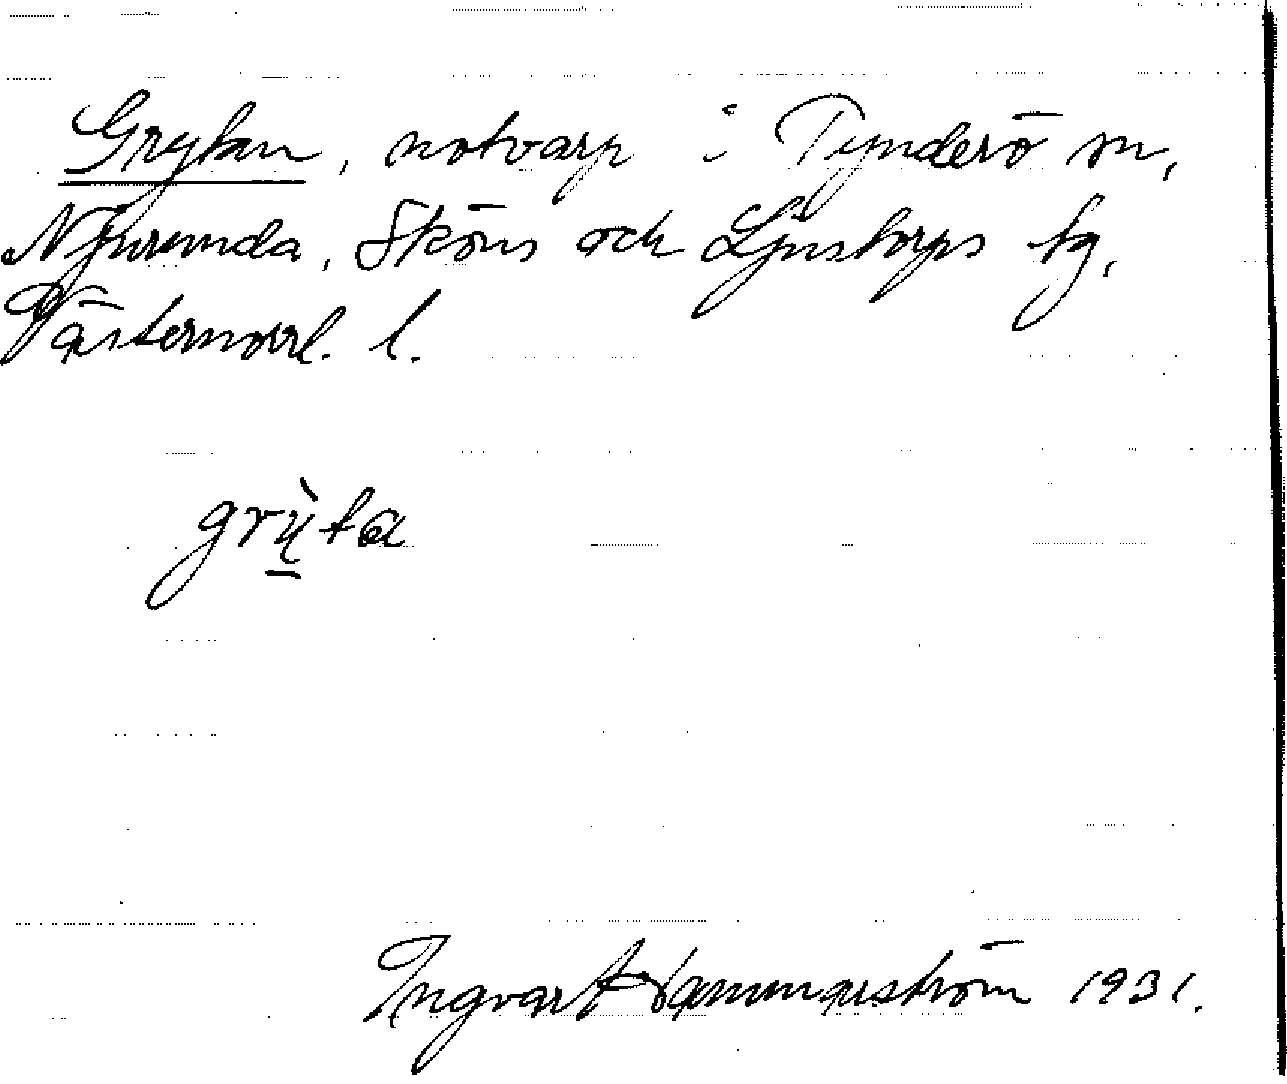 Grytan, notvarp i Tynderö sn,
Njurunda, Sköns och Ljustorps tg,
Västernorrl. l.
grỳ̱ta
Ingvar Hammarström 1931.